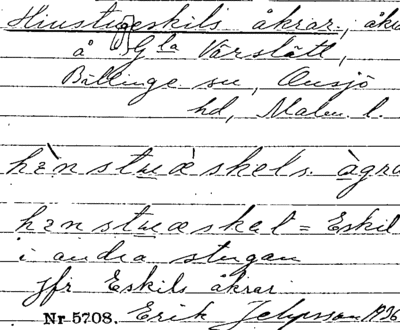 Hinstugeskils åkrar, åk
å Gla Värslätt,
Billinge sn, Onsjö
hd, Malm. l.
hɛ̀nstuæskəls. ågra
hɛnstuæskəl = Eskil
i andra stugan
Jfr Eskils åkrar
Nr 5708. Erik 1936